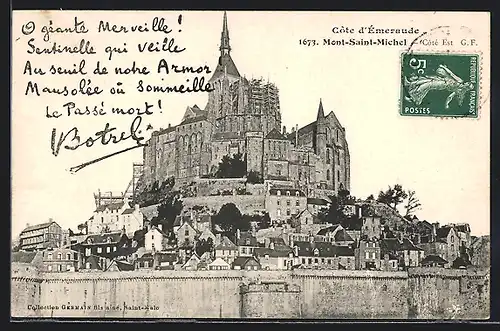 O géante Merveille !
Sentinelle qui veille
Au seuil de notre Armor
Mausolée où Sommeille
Le Passé mort !
Botrel
Côte d'Emeraude
1673. Mont-Saint-Michel (Côté Est G.F.
5c
POSTES
Collection GERMAIN fils aîné, Saint-Malo